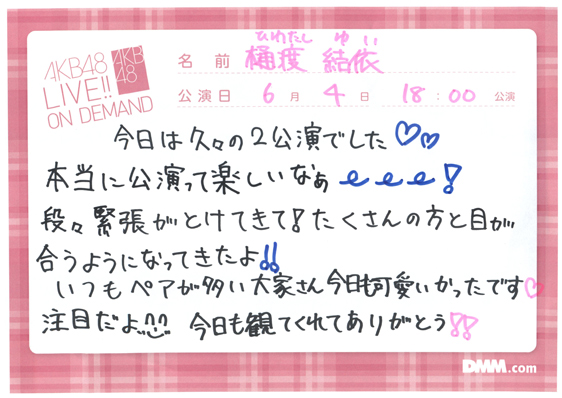 AKB48
LIVE!!
ON DEMAND
AKB
48
ひわたし ゆい
名前 樋渡 結依
公演日 6月4日 18:00公演
今日は久々の2公演でした♡♡
本当に公演って楽しいなぁeee!
段々緊張がとけてきて!たくさんの方と目が
合うようになってきたよ!!
いつもペアが多い大家さん今日も可愛いかったです♡
注目だよ^^ 今日も観てくれてありがとう!!
DMM.com